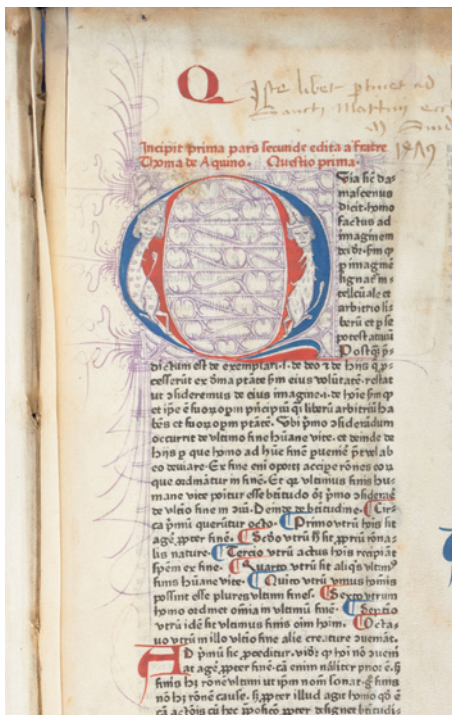 Q
Iste liber ptinet ad
Sancti Martini eccl
1479
Incipit prima pars secunde edita a fratre
Thoma de Aquino. Questio prima.
Quia sic̄ da⸗
mascenus
dicit. homo
factus ad
imaginem
dei dr̄. ſm ꝙ
ꝑ imaginē
ſignaꝉ̄ in⸗
tellc̄uale et
arbitrio li⸗
berū et ꝑ se
potestatiuū
Postꝙ̄ p̄⸗
dictum est de exemplari .i. de deo ⁊ de hijs q̄ p̄⸗
cesserūt ex diīa ptāte ſm eius volūtatē. restat
ut ↄsideremus de eius imagine .i. de hoīe ſm ꝙ
et ipe ē suoꝝ oꝑm p̄ncipiū q̄i liberū arbitriū ha
bēs et suoꝝ oꝑm ptātē. Vbi pi̅mo ↄsiderādum
occurrit de vltimo fine hūane vite. et deinde de
hijs ꝑ que homo ad hūc finē puenīē p̄t vel ab
eo deuiare. Ex fine enī oportꝫ accipe rōnes eoꝝ
que ordināꝉ̄ in finē. Et q̄ vltimus finis hu⸗
mane vite poiꝉ̄ esse btītudo oꝫ pi̅mo ↄsiderāe
de vltīo fine in cōi. Deinde de btītudine. Cir⸗
ca p̄mū queruntꝉ̄ octo. Primo vtrū hoīs sit
agē ꝓpter finē. Scd̄o vtrū ħ sit ꝓpriū rōna⸗
lis nature. Tercio vtrū actus hoīs recipiāt
spēm ex fine. Quarto vtrū sit aliq̄s vltimꝰ
finis hūane vite. Quīto vtrū vnius homīs
possint esse plures vltimi fines. Sexto vtrum
homo ordinet omīa in vltimū finē. Septīo
vtrū idē sit vltimus finis oīm hoīm. Octa⸗
uo vtrū in illo vltīo fine alie creature ↄuenāt.
AD p̄mū sic ꝓcediꝉ̄. vidr̄ ꝙ hoī nō ↄuenī
at agē ꝓpter finē. cā enim nāliter prior ē. ſꝫ
finis hꝫ rōnē vltimi ut ipm nom̄ sonat. g̊ finis
nō hꝫ rōnē cause. ſꝫ ꝓpter illud agit homo qd̄ ē